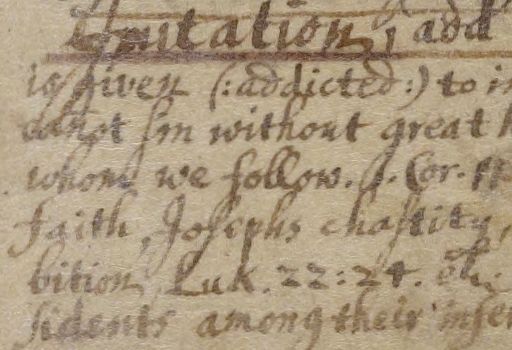 Imitation, add
is given (: addicted :) to i
cañot sin without great
whom we follow. 1. Cor. 11
faith, Josephs chastity,
bition, Luk. 22:24. etc.
sidents among their infer